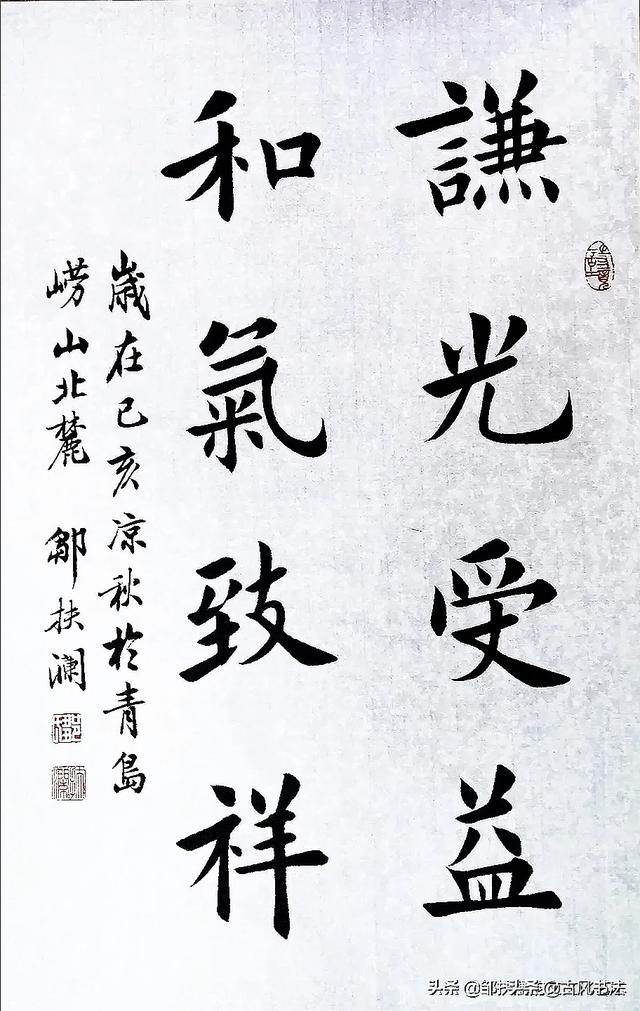 謙光受益
和氣致祥
歲在己亥凉秋於青島
崂山北麓 鄒扶澜
头条 @古风书法